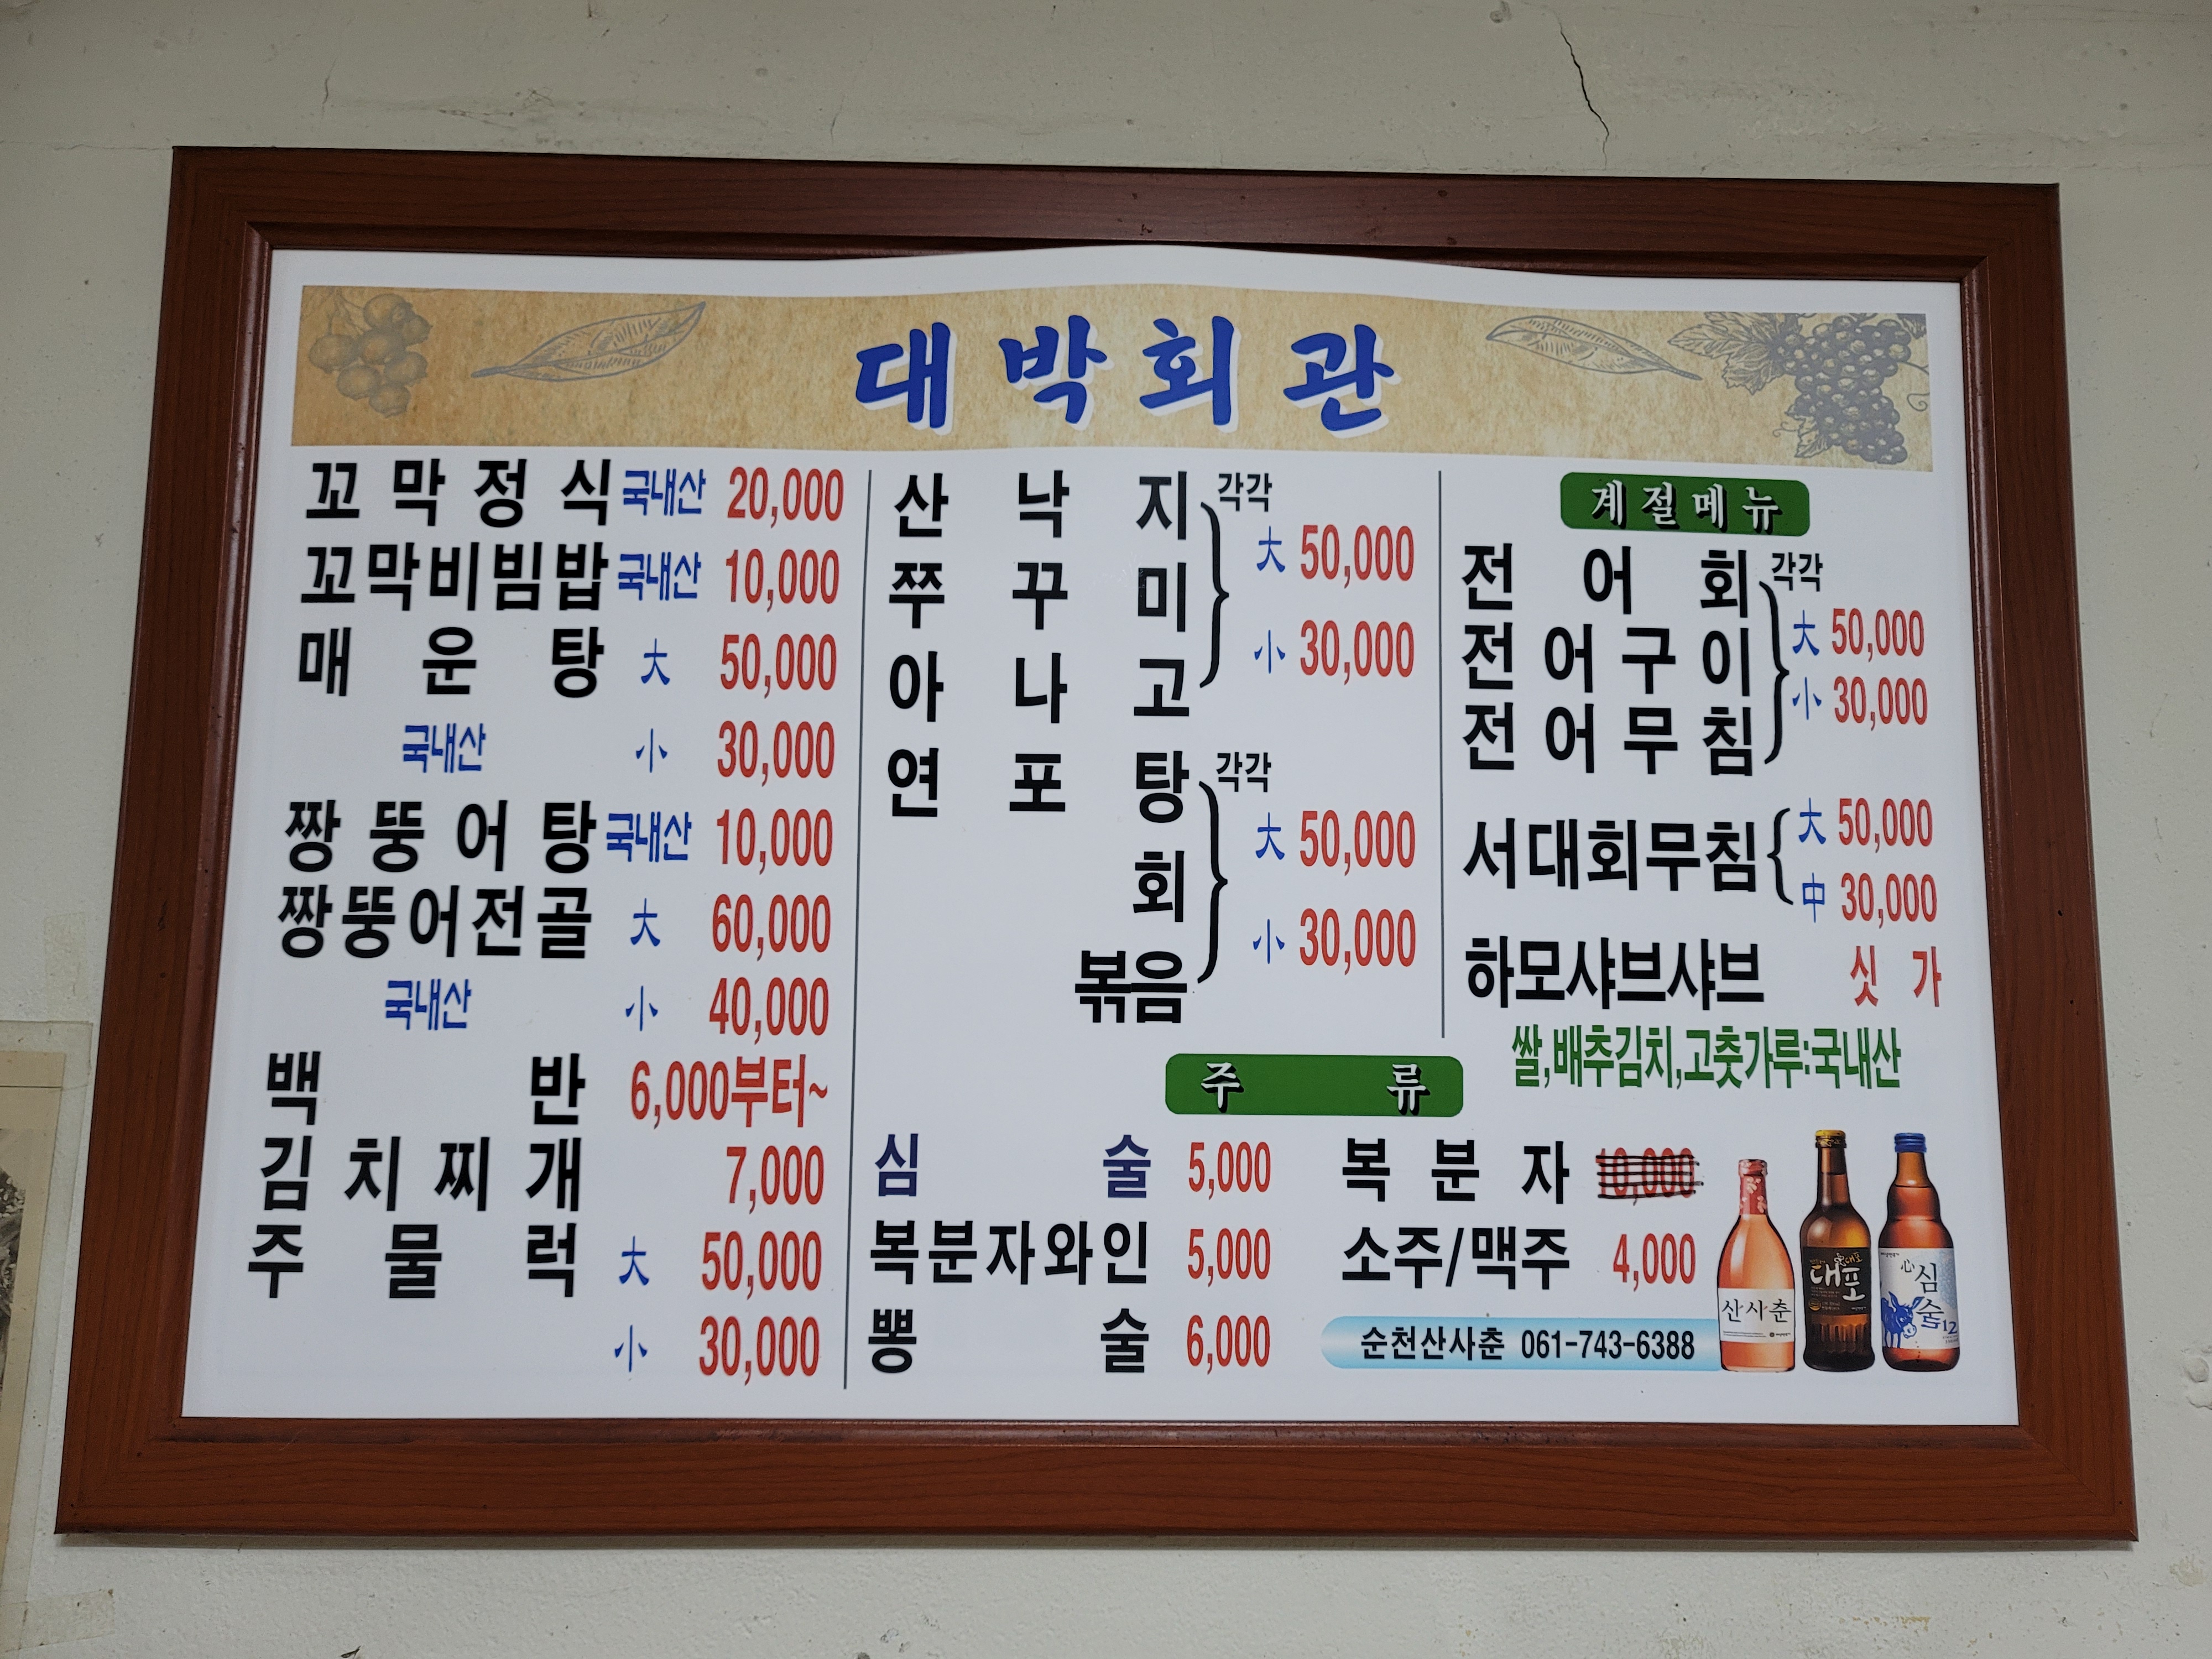 대박회관
꼬막정식 국내산 20,000
꼬막비빔밥 국내산 10,000
매운탕 大 50,000
국내산 小 30,000
짱뚱어탕 국내산 10,000
짱뚱어전골 大 60,000
국내산 小 40,000
백반 6,000부터~
김치찌개 7,000
주물럭 大 50,000
小 30,000
산낙지 각각
大 50,000
쭈꾸미
小 30,000
아나고
연포탕 각각
大 50,000
회
小 30,000
볶음
계절메뉴
전어회 각각
大 50,000
전어구이
小 30,000
전어무침
서대회무침 大 50,000
中 30,000
하모샤브샤브 싯가
쌀,배추김치,고춧가루:국내산
주류
심술 5,000
복분자와인 5,000
뽕술 6,000
복분자 10,000
소주/맥주 4,000
순천산사춘 061-743-6388
산사춘
대포
心심
술12